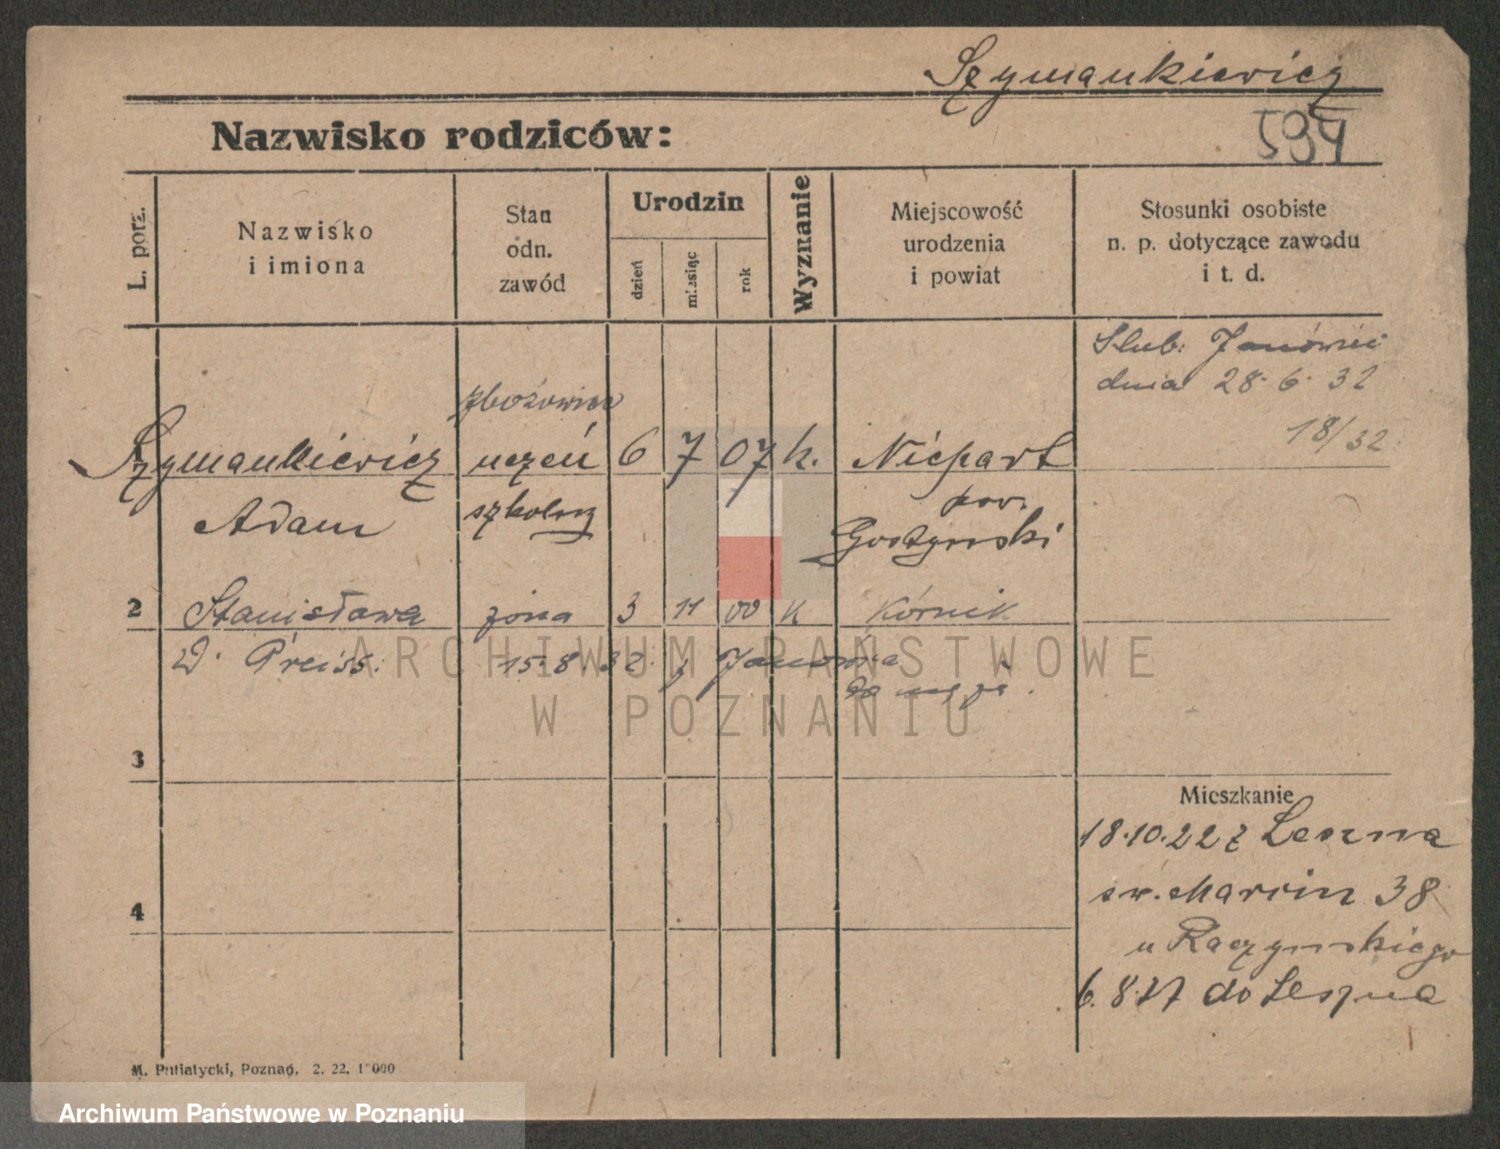 Szymankiewicz
594
Nazwisko rodziców:
L. porz.
Nazwisko
i imiona
Stan
odn.
zawód
Urodzin
dzień
miesiąc
rok
Wyznanie
Miejscowość
urodzenia
i powiat
Stosunki osobiste
n. p. dotyczące zawodu
i t. d.
Slub: Janówiec
dnia 28.6.32
18/32.
zbożowiec
Szymankiewicz uczeń 6 7 07 k. Niepart
Adam szkolny pow.
Gostynski
2 Stanisława żona 3 11 00 k Kórnik
D. Preiss. 15.8 32. z Janówca
do męża.
3
Mieszkanie
18.10.22 z Leszna
św. Marcin 38
u Raczynskiego
6.8.27 do Leszna
4
M. Putiatycki, Poznań. 2. 22. 1 000
ARCHIWUM PAŃSTWOWE
W POZNANIU
Archiwum Państwowe w Poznaniu